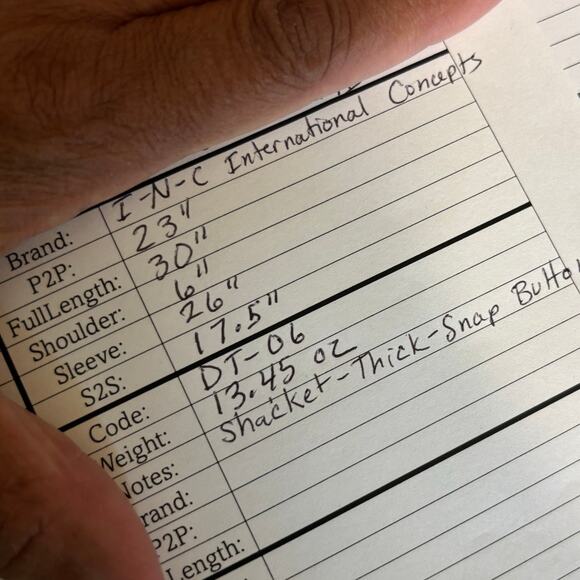 Brand: I-N-C International Concepts
P2P: 23"
FullLength: 30"
Shoulder: 6"
Sleeve: 26"
S2S: 17.5"
Code: DT-06
Weight: 13.45 oz
Notes: Shacket-Thick-Snap Button
rand:
P2P:
Length: